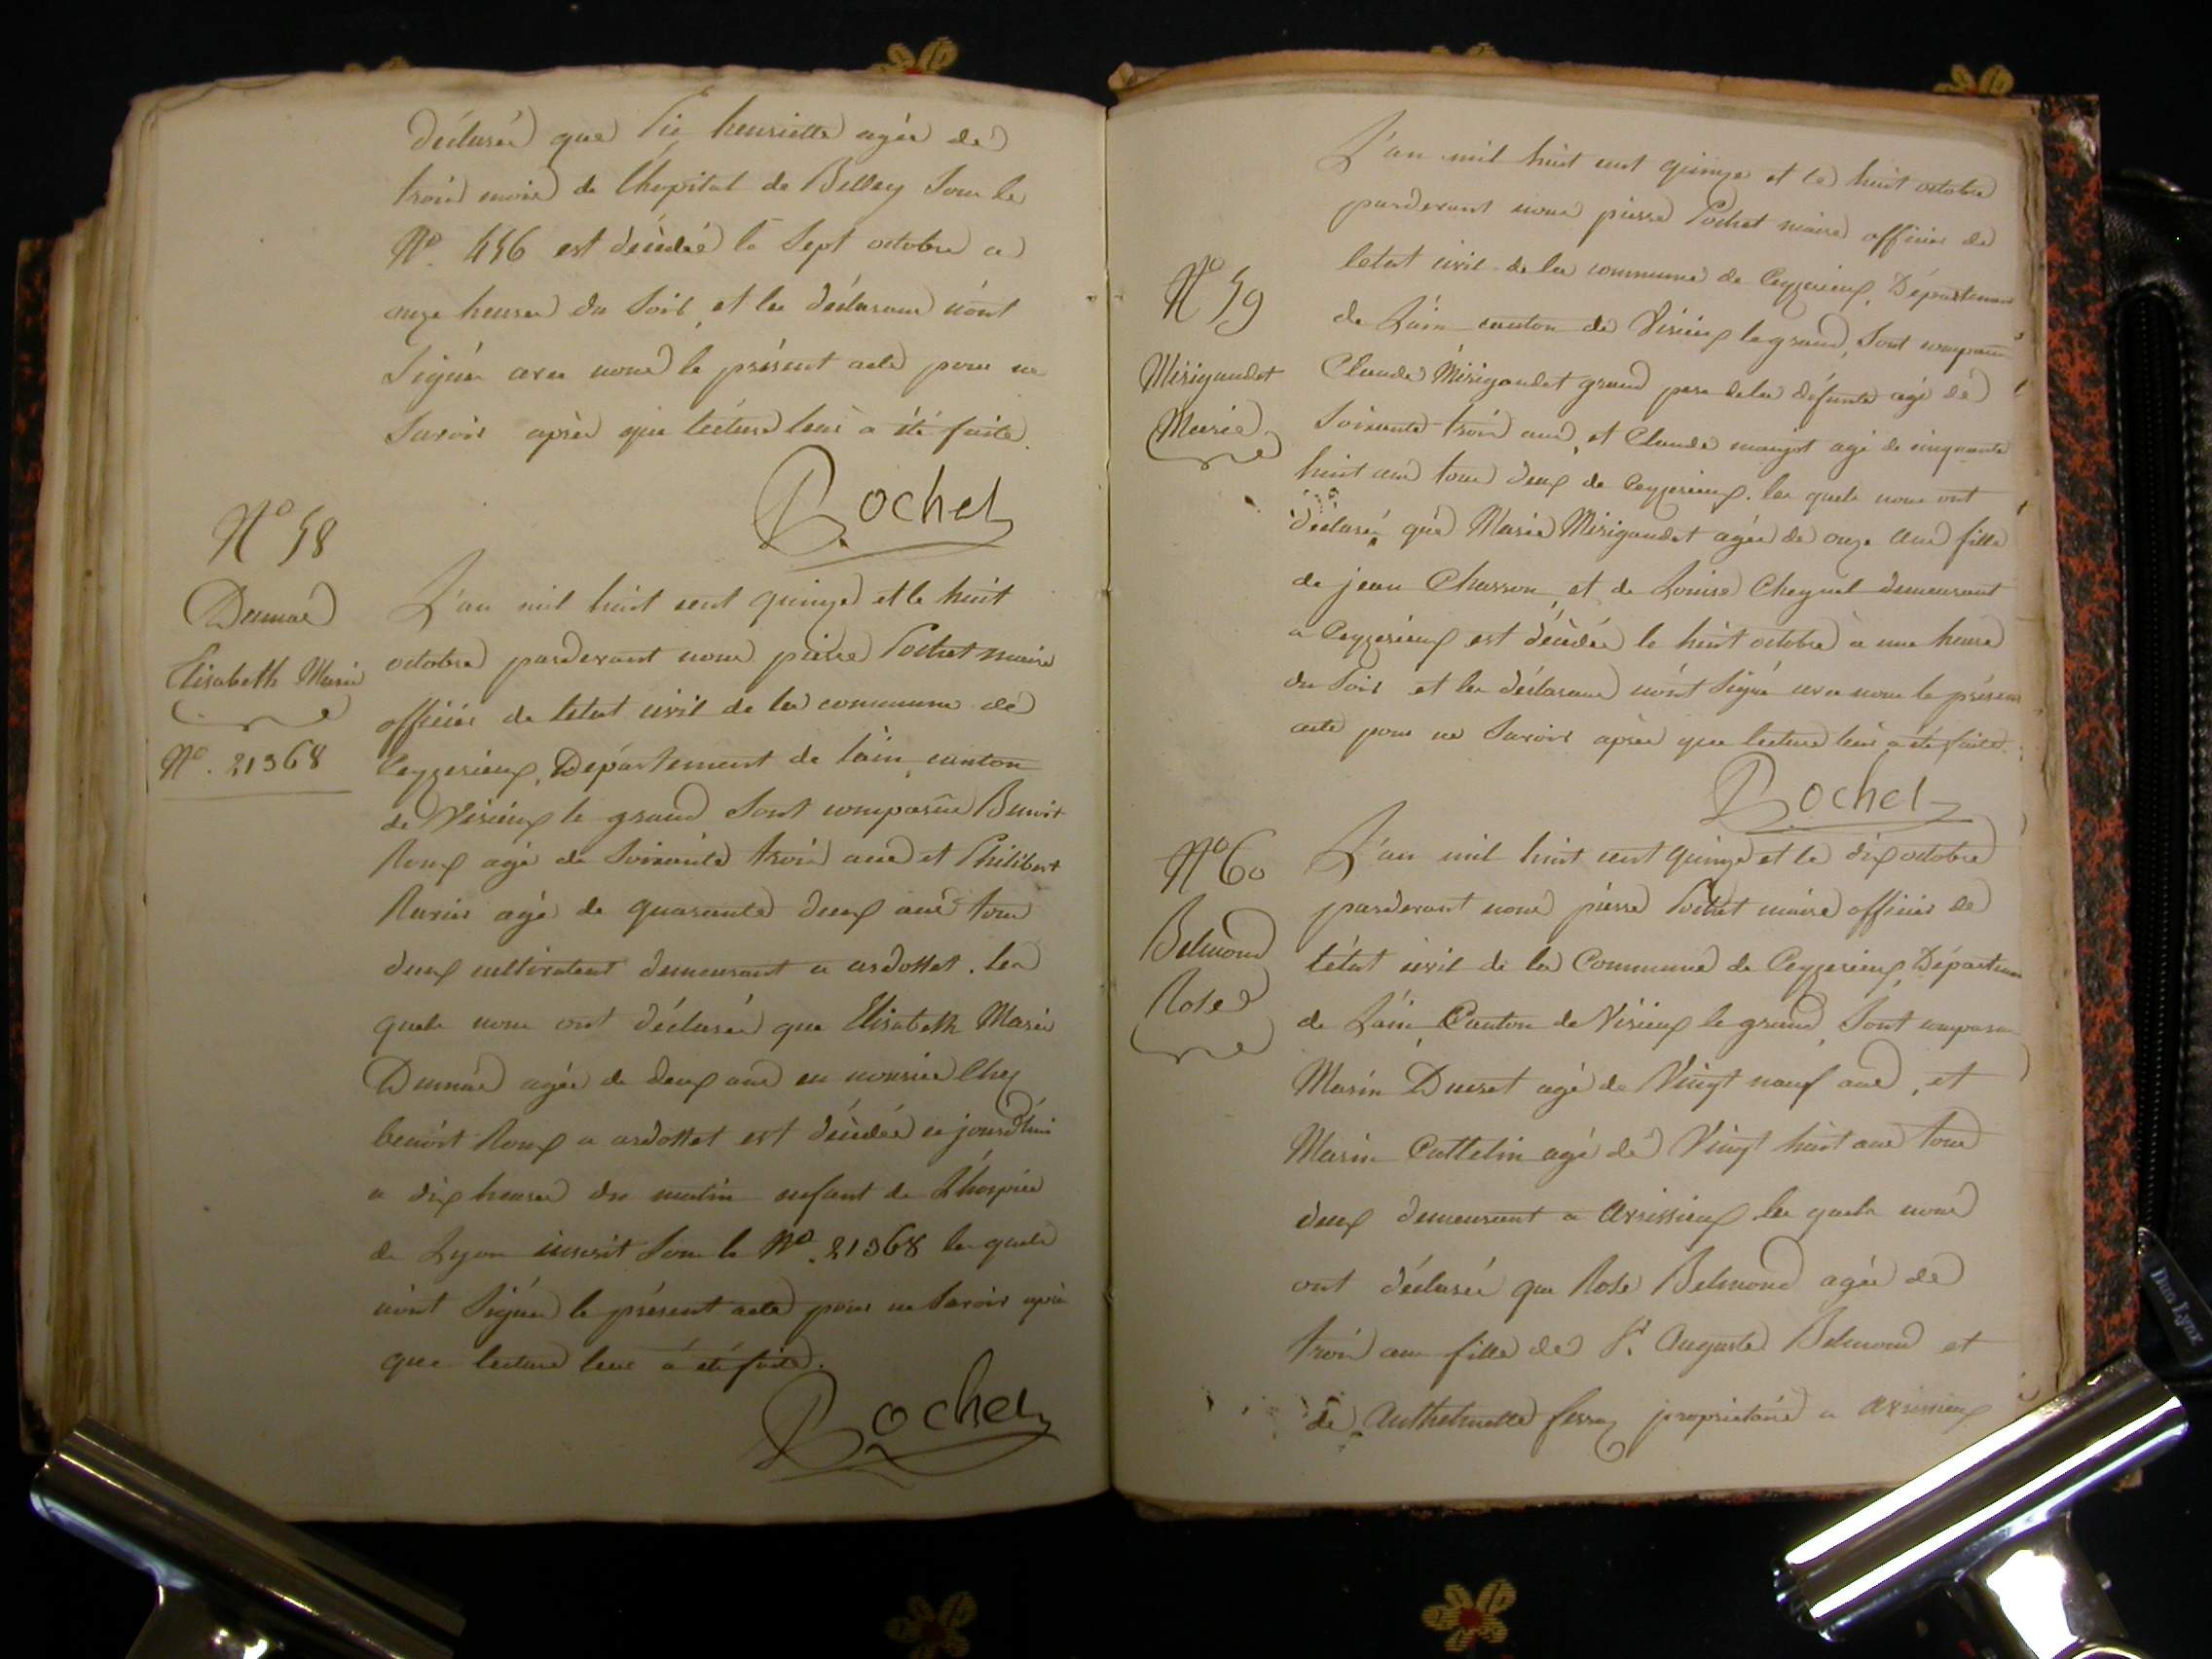 déclaréé que Pie henriette agéé de
trois mois de l'hopital de Belley Sous le
N.º 456 est décédéé le Sept octobre a
onze heures du Soir, et les déclarans n'ont
Signés avec nous le présent acte pour ne
Savoir après que lecture leur a été faite.
Pochet
Nº 58
Dumas
Elisabeth Marie
Nº. 21368
L'an mil huit cent quinze et le huit
octobre pardevant nous pierre Pochet maire
officier de letat civil de la commune de
Ceyzerieux, Département de lain, canton
de Virieux le grand Sont comparûs Benoit
Roux agé de Soixante trois ans et Philibert
agé de quarante deux ans tous
deux cultivateur demeurant a ardottet. les
quels nous ont déclaréé que Elisabeth Marie
Dumas agéé de deux ans en nourice Chez
benoit Roux a ardottet est décédéé ce jourd'hui
a dix heures du matin enfant de L'hospice
de Lyon inscrit Sous le Nº. 21368 les quels
n'ont Signés le présent acte pour ne Savoir après
que lecture leur à été faite.
Pochet
L'an mil huit cent quinze et le huit octobre
pardevant nous pierre Pochet maire officier de
letat civil de la commune de Ceyzerieux, Département
de Lain canton de Virieux le grand, Sont comparus
Nº 59
Mirigaudet
Marie
Claude Mirigaudet grand pere de la défunte agé de
Soixante trois ans, et Claude maujot agé de cinquante
huit ans tous deux de Ceyzerieux. les quels nous ont
déclaréé que Marie Mirigaudet agéé de onze ans fille
de jean Chasson, et de Louise demeurant
a Ceyzerieux est décédéé le huit octobre a une heure
du Soir et les déclarans n'ont Signé avec nous le présent
acte pour ne Savoir après que lecture leur a été faite.
Pochet
Nº 60
Belmond
Rose
L'an mil huit cent quinze et le dix octobre
pardevant nous pierre Pochet maire officier de
létat civil de la Commune de Ceyzerieux, Département
de Lain, Canton de Virieux le grand, Sont comparus
Marin Ducret agé de Vingt neuf ans, et
Marin Cattelin agé de Vingt huit ans tous
deux demeurant a Avrissieux les quels nous
ont déclaréé que Rose Belmond agéé de
trois ans fille de Sr. Auguste Belmond et
de Anthelmette ferraz propriétaire a Avrissieux